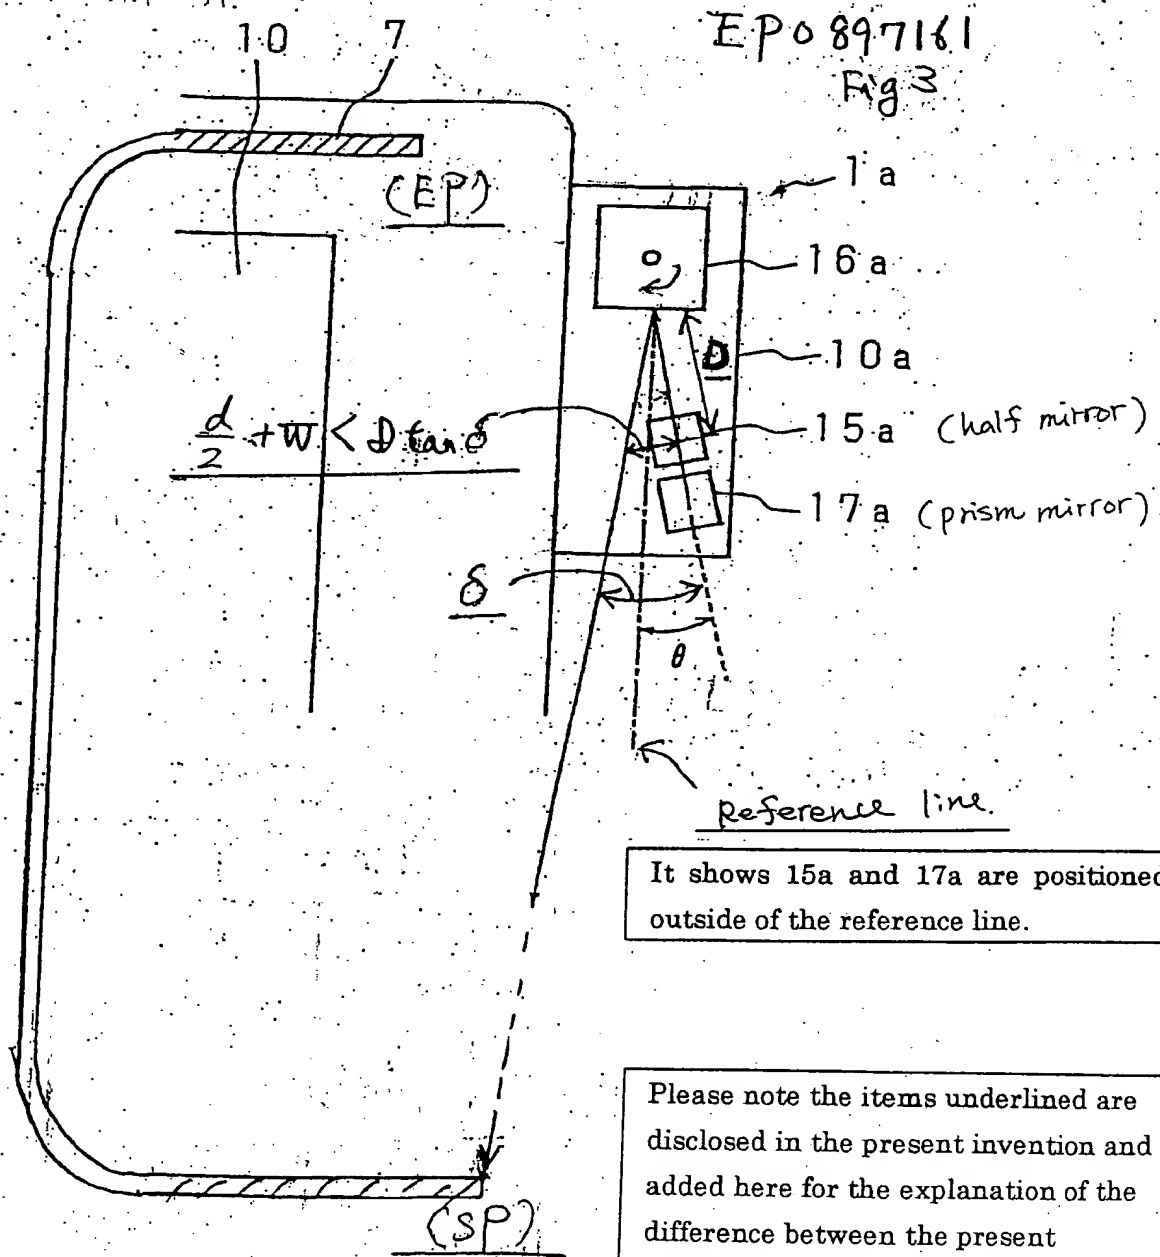 EP0897161
Fig 3
10
7
1a
(EP)
16a
D
10a
d/2 + W < D tan δ
15a (half mirror)
17a (prism mirror)
δ
θ
Reference line.
It shows 15a and 17a are positioned
outside of the reference line.
Please note the items underlined are
disclosed in the present invention and
added here for the explanation of the
difference between the present
(SP)